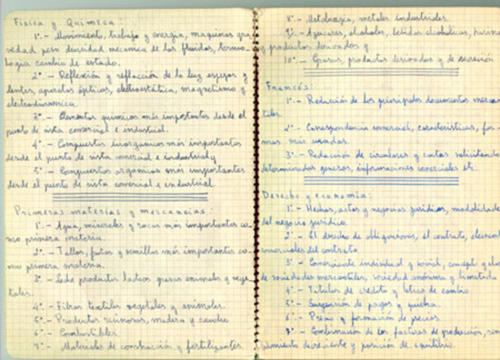 Física y Química:
1º.- Movimiento, trabajo y energía, maquinas gra-
vedad peso densidad mecanica de los fluidos, termo-
logia cambio de estado.
2º.- Reflexión y refracción de la luz espejos y
lentes, aparatos ópticos, electrostática, magnetismo y
electrodinámica.
3º.- Elementos químicos más importantes desde el
punto de vista comercial e industrial.
4º.- Compuestos inorganicos más importantes
desde el punto de vista comercial e industrial y
5º.- Compuestos orgánicos más importantes
desde el punto de vista comercial e industrial
Primeras materias y mercancias:
1º.- Agua, minerales y rocas más importantes co-
mo primera materia.
2º.- Tallos, frutos y semillas más importantes co-
mo primera materia.
3º.- Seda productos lacteos grasas animales y vege-
tales.
4º.- Fibras textiles vegetales y animales.
5º.- Productos resinosos, madera y caucho
6º.- Combustibles.
7º.- Materiales de construcción y fertilizantes.
8º.- Metalurgia, metales industriales.
9º.- Azucares, alcoholes, bebidas alcoholicas, harina
y productos
10º.- Grasas, productos derivados y de
Francés:
1º.- Redacción de los principales documentos merca-
2º.- Correspondencia comercial, características, for-
mas más usuales.
3º.- Redacción de circulares y cartas solicitando
determinados generos, informaciones comerciales etc.
Derecho y economía:
1º.- Hechos, actos y negocios juridicos, modalidades
del negocio juridico.
2º.- El derecho de obligaciones, el contrato, elementos
del contrato.
3º.- Comerciante individual y social, concepto y clases
de sociedades mercantiles, sociedad anónima y limitada
4º.- Titulos de credito y letra de cambio
5º.- Suspensión de pagos y quiebra.
6º.- Precio y formación de precios.
7º.- Combinación de los factores de producción, ren-
dimiento decreciente y posición de equilibrio.